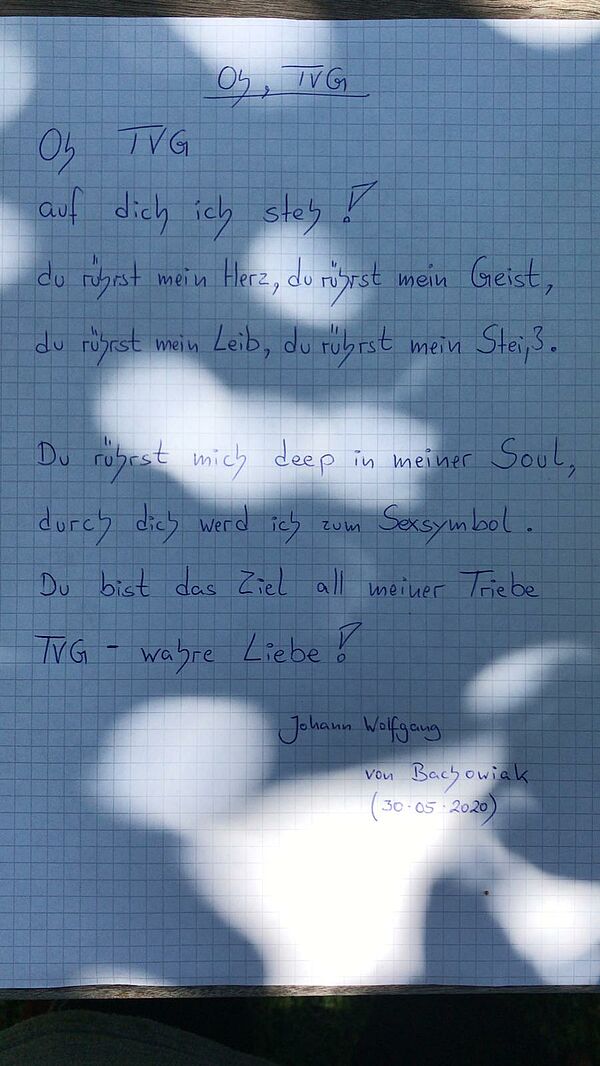 Oh, TVG
Oh TVG
auf dich ich steh!
du rührst mein Herz, du rührst mein Geist,
du rührst mein Leib, du rührst mein Stei,ß.
Du rührst mich deep in meiner Soul,
durch dich werd ich zum Sexsymbol.
Du bist das Ziel all meiner Triebe
TVG - wahre Liebe!
Johann Wolfgang
von Bachowiak
(30.05.2020)